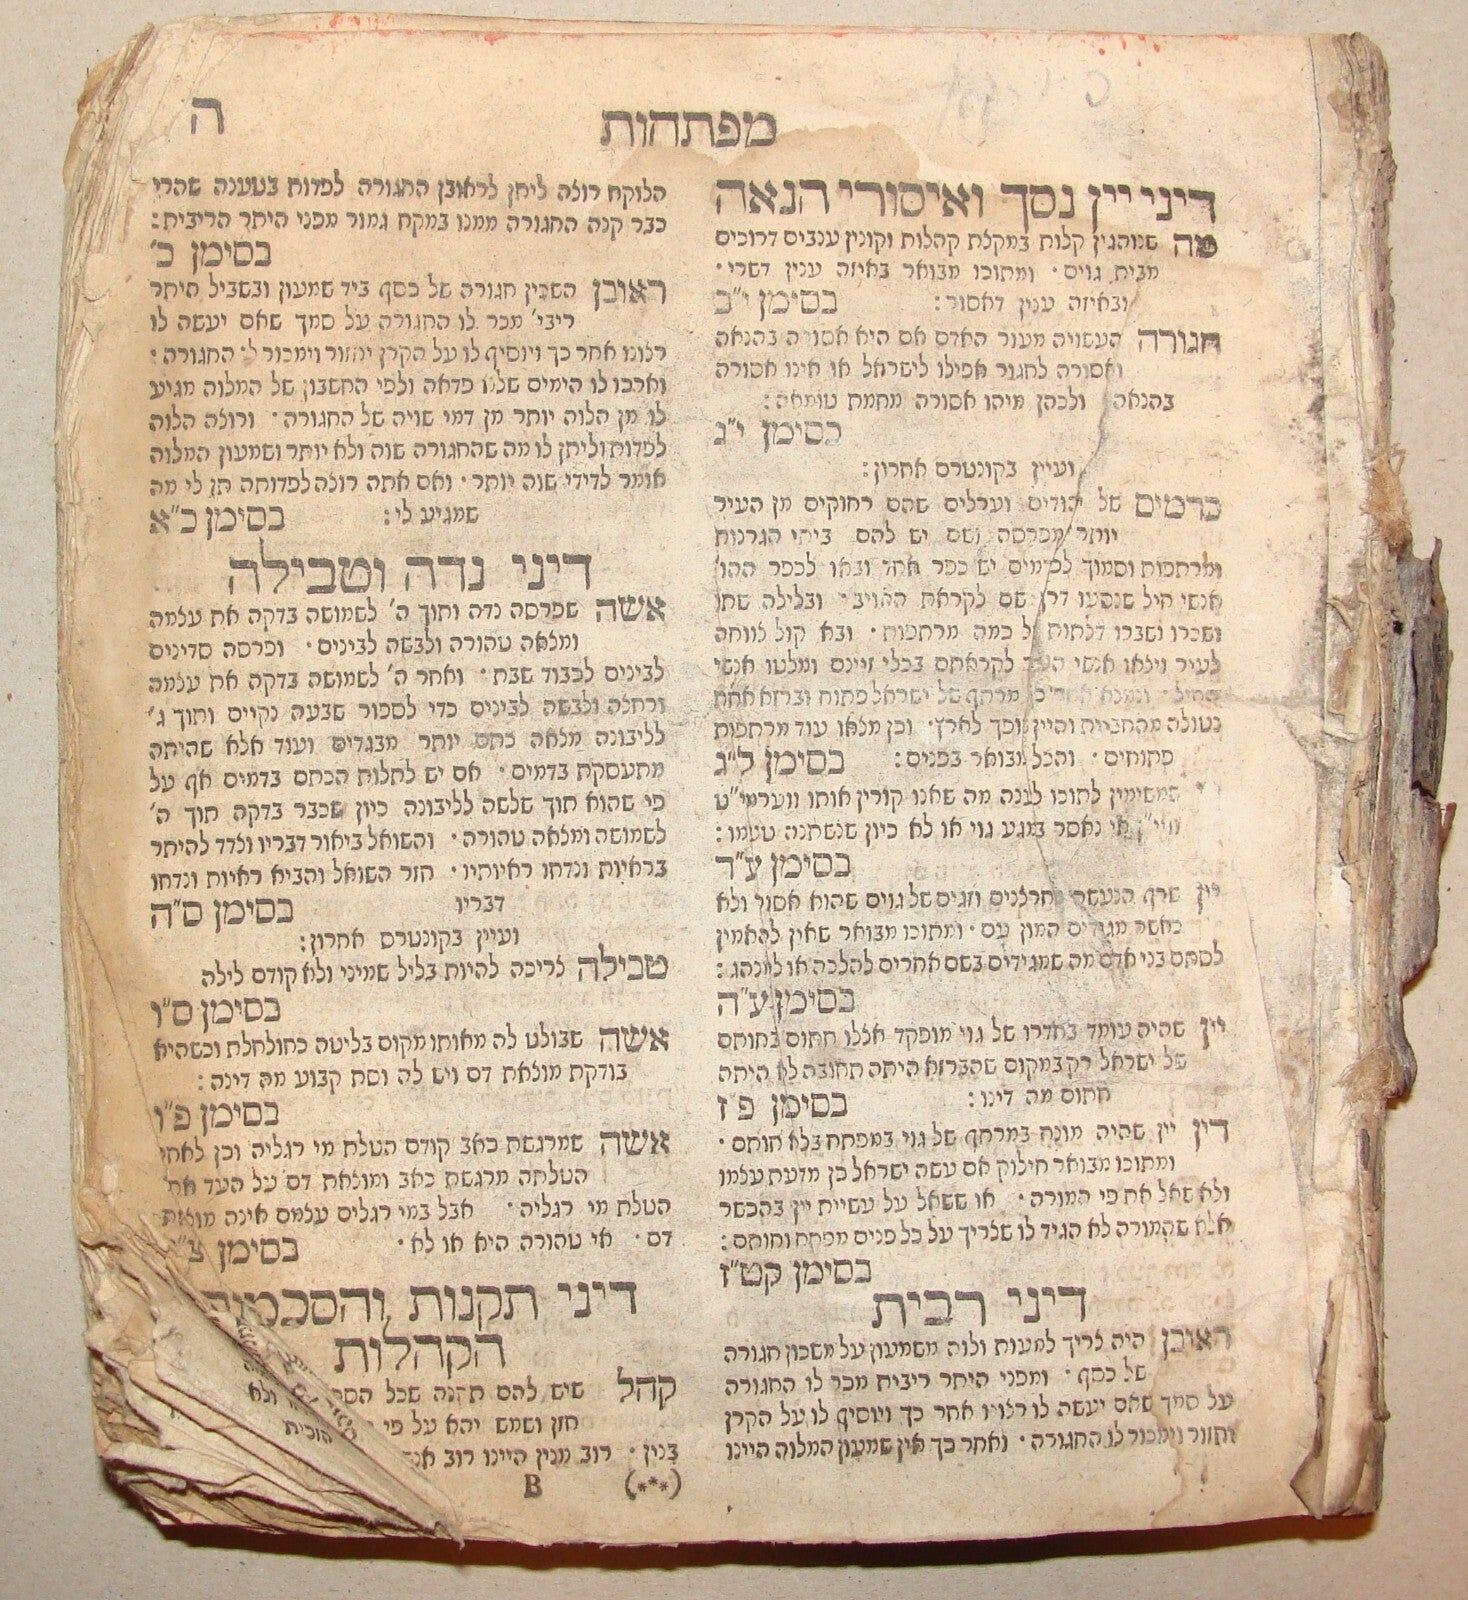 ה
מפתחות
דיני יין נסך ואיסורי הנאה
מה שנוהגין קלות במקלת קהלות וקונין ענבים דרוכים
מבית גוים · ומתוכו מבואר באיזה ענין דשרי ·
ובאיזה ענין דאסור : בסימן י״ב
חגורה העשויה מעור האדם אם היא אסורה בהנאה
ואסורה לחגור אפילו לישראל או אינו אסורה
בהנאה ולכהן מיהו אסורה מחמת טומאה :
בסימן י״ג
ועיין בקונטרס אחרון :
כרמים של יהודים וערלים שהם רחוקים מן העיר
יותר מפרסה ושם יש להם ביתי הגרנות
ומרתפות וסמוך לכרמים יש כפר אחד ובאו לכפר ההו׳
אנשי חיל שנסעו דרך שם לקראת האויב · ובלילה שתו
ושכרו ושברו דלתות של כמה מרתפות · ובא קול צווחה
לעיר ויצאו אנשי העיר לקראתם בכלי זיינם ומלטו אנשי
החיל · ונמצא מרתף של ישראל פתוח וברזא אחת
נטולה מהחבית והיין נופך לארץ · וכן מצאו עוד מרתפות
פתוחים · והכל מבואר בפנים : בסימן ל״ג
שמשימין לתוכו לענה מה שאנו קורין אותו ווערמי״ט
וויי״ן אי נאסר במגע גוי או לא כיון שנשתנה טעמו :
בסימן ע״ד
יין שרף הנעשה מחרצנים וזגים של גוים שהוא אסור ולא
כאשר מגידים המון עם · ומתוכו מבואר שאין להאמין
לסתם בני אדם מה שמגידים בשם אחרים להלכה או למנהג :
בסימן ע״ה
יין שהיה עומד בחדרו של גוי מופקד אצלו חתום בחותם
של ישראל רק במקום שהברזא היתה תחובה לא היתה
חתום מה דינו : בסימן פ״ז
דין יין שהיה מונח במרתף של גוי במפתח בלא חותם ·
ומתוכו מבואר חילוק אם עשה ישראל כן מדעת עצמו
ולא שאל את פי המורה · או ששאל על עשיית יין בהכשר
אלא שהמורה לא הגיד לו שצריך על כל פנים מפתח וחותם :
בסימן קט״ז
דיני רבית
ראובן היה צריך למעות ולוה משמעון על משכון חגורה
של כסף · ומפני היתר ריבית מכר לו החגורה
על סמך שאם יעשה לו רצונו אחר כך ויוסיף לו על הקרן
יחזור וימכור לו החגורה · ואחר כך אין שמעון המלוה היינו
הלוקח רוצה ליתן לראובן החגורה לפדות בטענה שהרי
כבר קנה החגורה ממנו במקח גמור מפני היתר הריבית :
בסימן כ׳
ראובן השכין חגורה של כסף ביד שמעון ובשביל היתר
ריבי׳ מכר לו החגורה על סמך שאם יעשה לו
רצונו אחר כך ויוסיף לו על הקרן יחזור וימכור לו החגורה :
וארכו לו הימים שלא פדאה ולפי החשבון של המלוה מגיע
לו מן הלוה יותר מן דמי שויה של החגורה · ורוצה הלוה
לפדות וליתן לו מה שהחגורה שוה ולא יותר ושמעון המלוה
אומר לדידי שוה יותר · ואם אתה רוצה לפדותה תן לי מה
שמגיע לי : בסימן כ״א
דיני נדה וטבילה
אשה שפרסה נדה ותוך ה׳ לשמושה בדקה את עצמה
ומצאה טהורה ולבשה לבינים · ופרסה סדינים
לבינים לכבוד שבת · ואחר ה׳ לשמושה בדקה את עצמה
ורחצה ולבשה לבינים כדי לספור שבעה נקיים ותוך ג׳
לליבונה מצאה כתם יותר מבגדים ועוד אלא שהיתה
מתעסקת בדמים · אם יש לתלות הכתם בדמים אף על
פי שהוא תוך שלשה לליבונה כיון שכבר בדקה תוך ה׳
לשמושה ומצאה טהורה · והשואל ביאור דבריו ולדד להיתר
בראיות ונדחו ראיותיו · חזר השואל והביא ראיות ונדחו
דבריו בסימן ס״ה
ועיין בקונטרס אחרון :
טבילה צריכה להיות בליל שמיני ולא קודם לילה
בסימן ס״ו
אשה שבולט לה מאותו מקום בליטה כחולחלת וכשהיא
בודקת מוצאת דם ויש לה וסת קבוע מה דינה :
בסימן פ״ו
אשה שמרגשת כאב קודם הטלת מי רגליה וכן לאחר
הטלתה מרגשת כאב ומוצאת דם על העד אחר
הטלת מי רגליה · אבל במי רגלים עצמם אינה מוצאת
דם · אי טהורה היא או לא · בסימן
דיני תקנות והסכמות
הקהלות
קהל שיש להם תקנה שכל ולא
חזן ושמש יהא על פי
בנין · רוב מנין היינו רוב
B (***)